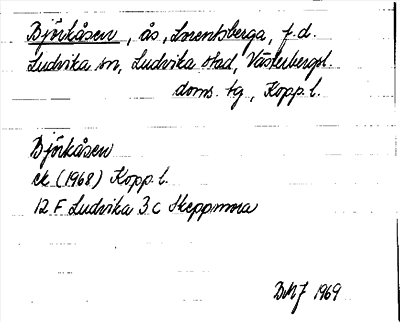 Björkåsen, ås, Lorentsberga, f.d.
Ludvika sn, Ludvika stad, Västerbergsl.
doms. tg, Kopp. l.
Björkåsen
ek (1968) Kopp. l.
12 F Ludvika 3 c Skeppmora
1969